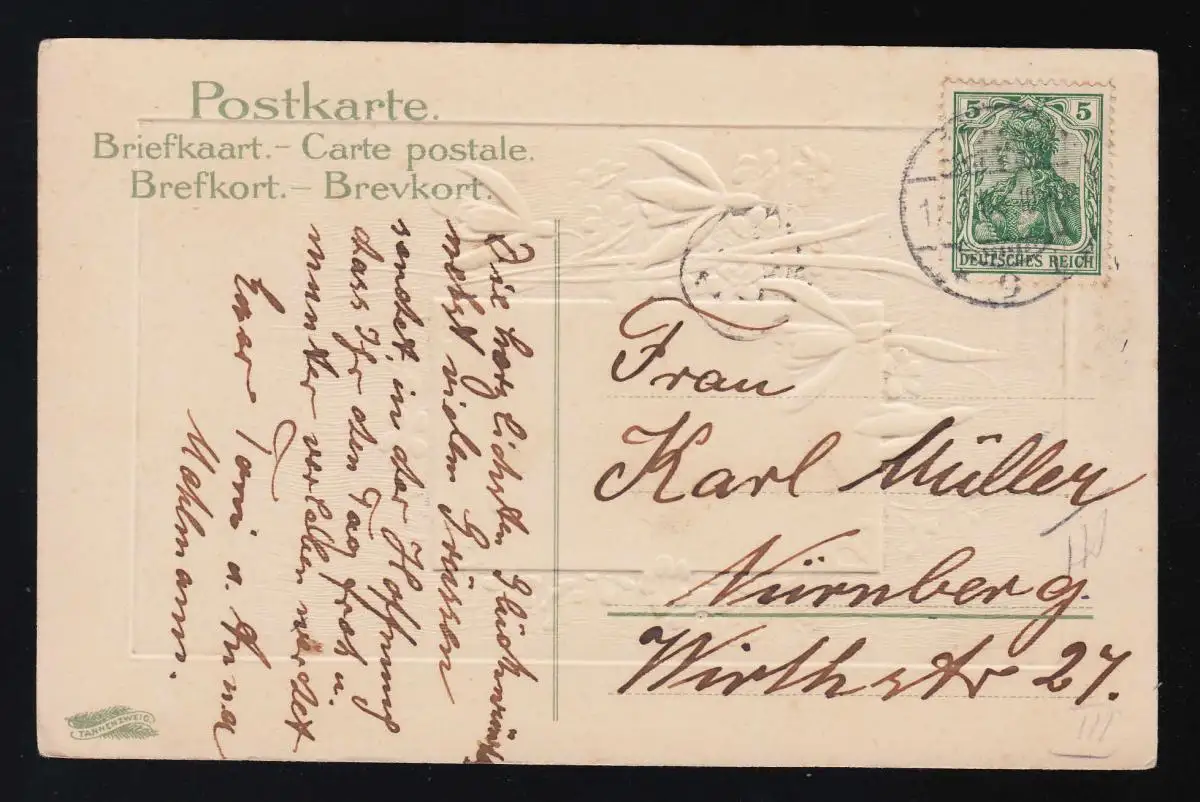 Postkarte.
Briefkaart. – Carte postale.
Brefkort. – Brevkort.
5 5
DEUTSCHES REICH
Die herzlichsten Glückwünsche
nebst vielen Grüssen
sendet in der Hoffnung
dass Ihr den Tag froh u.
munter verleben werdet
Euer Toni u. Anna
Mehlmann.
Frau
Karl Müller
Nürnberg.
Wirthstr 27.
III
TANNENZWEIG